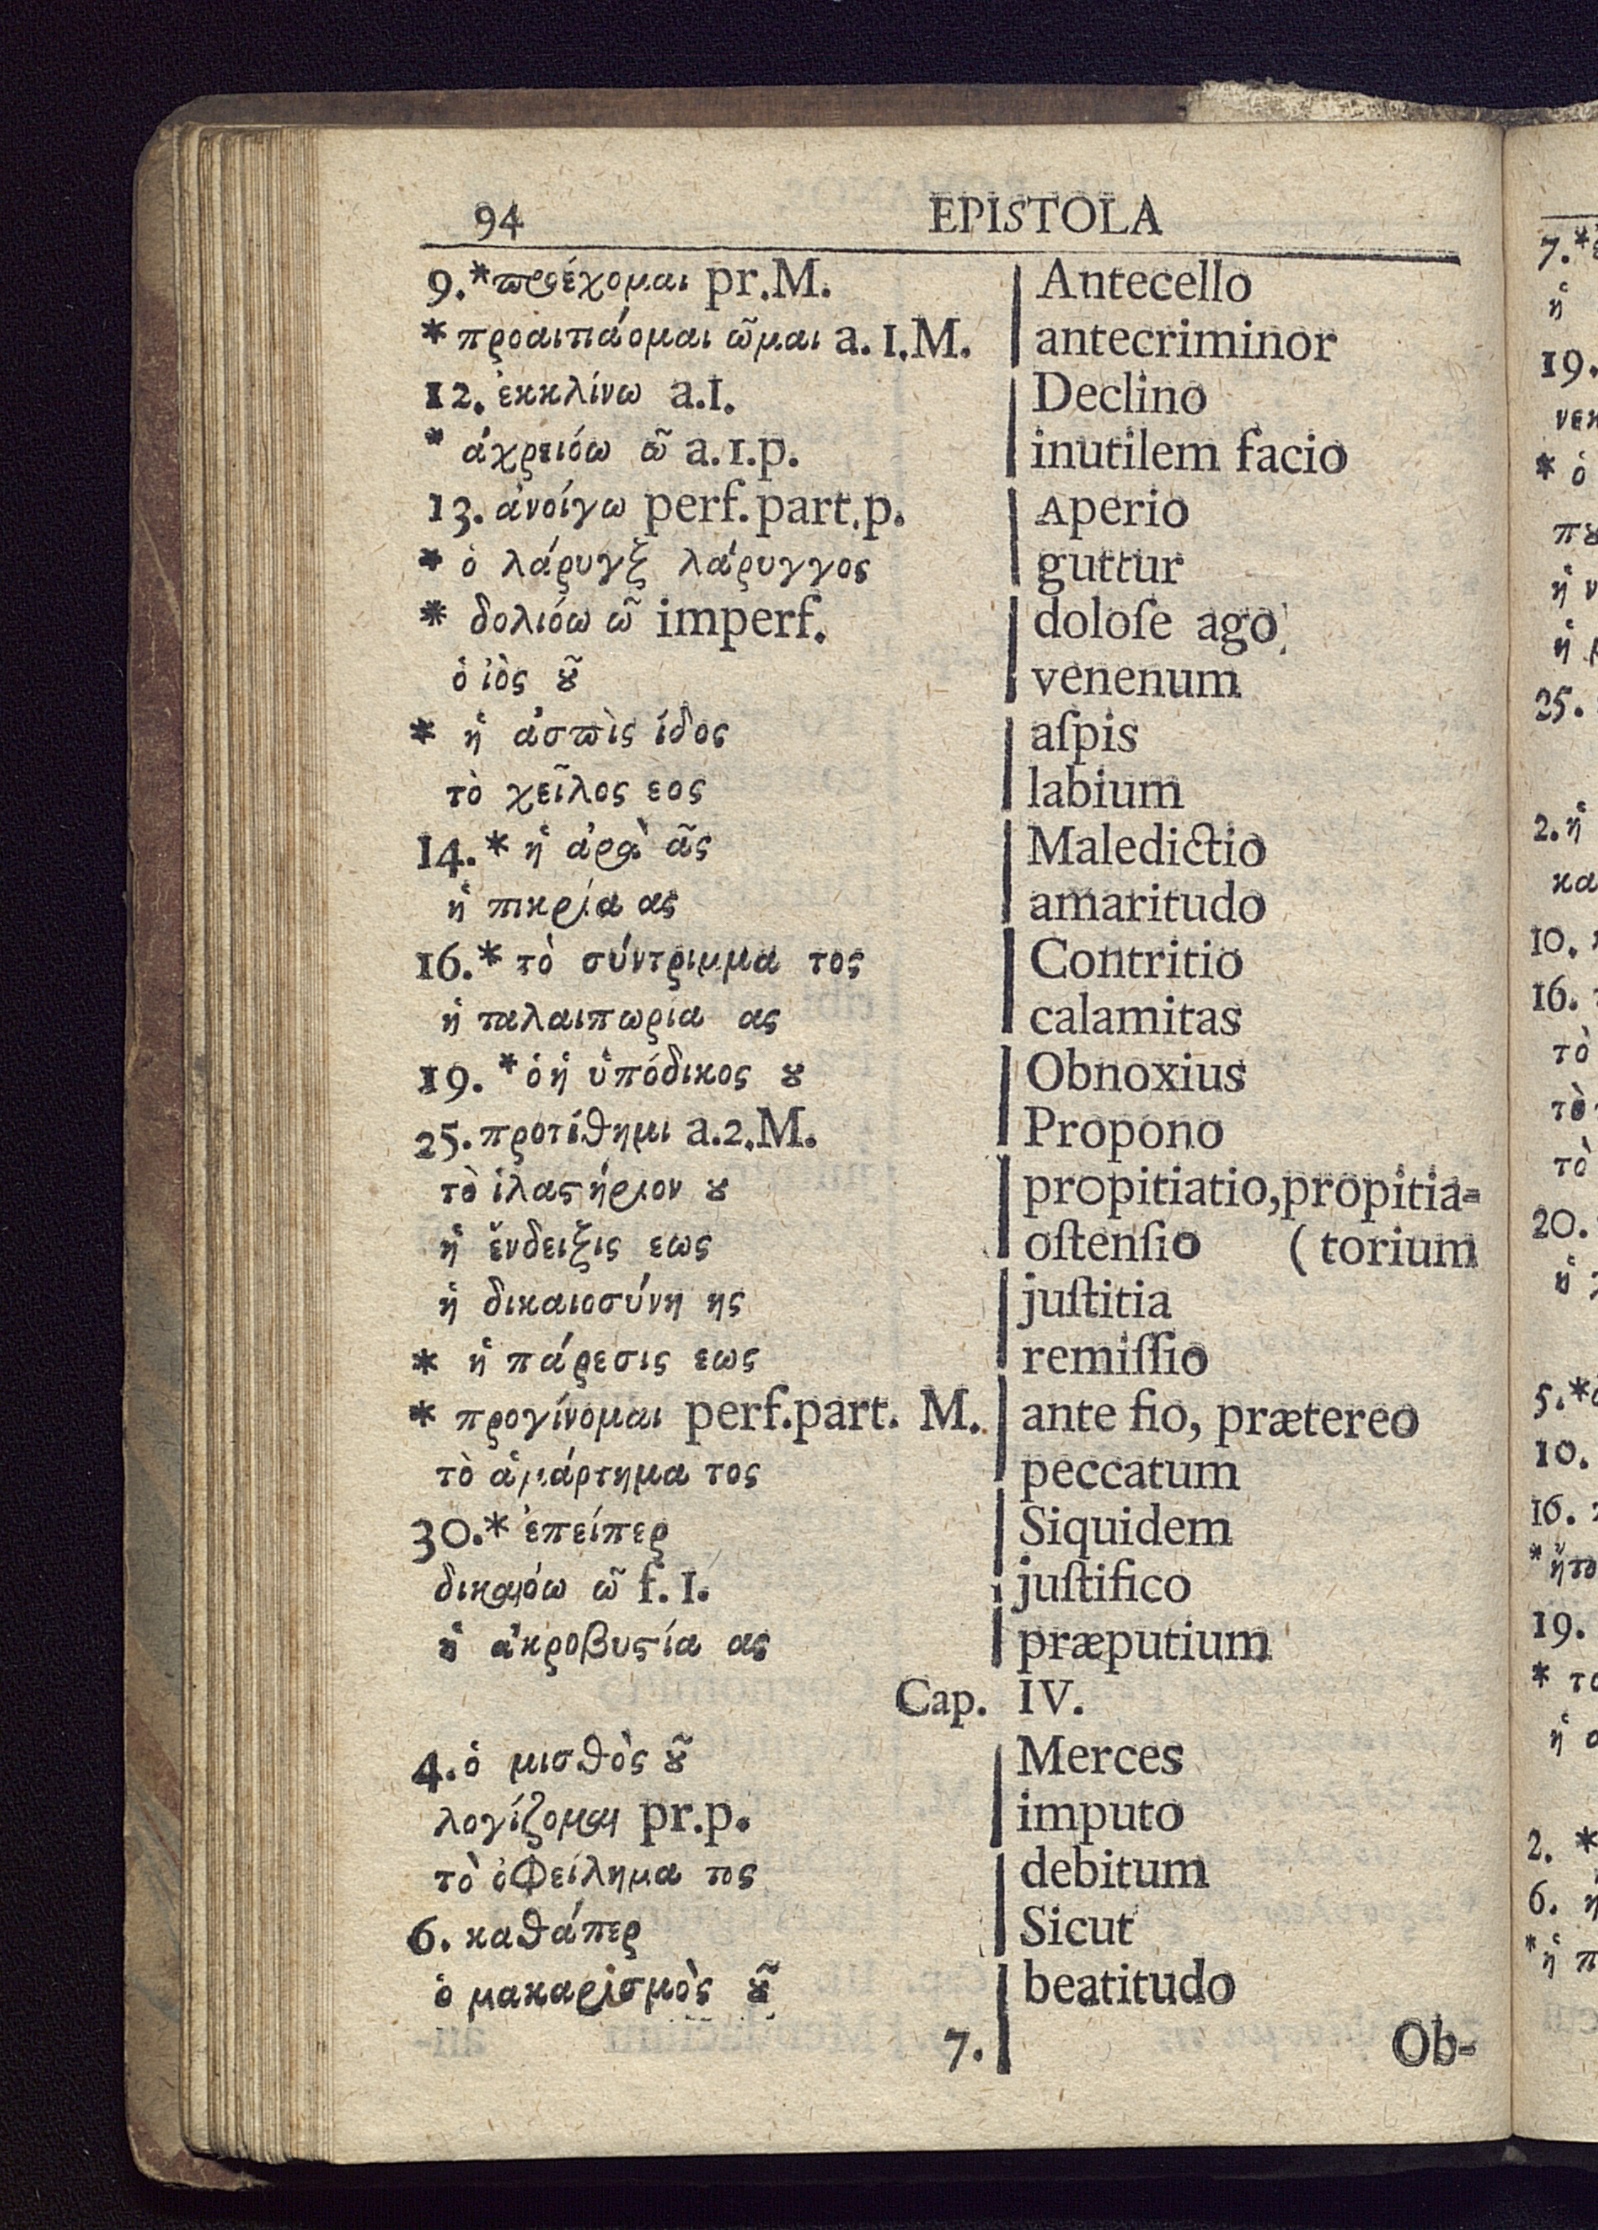 94 EPISTOLA
9.*προέχομαι pr.M. Antecello
* προαιτιάομαι ῶμαι a.1.M. antecriminor
12. ἐκκλίνω a.1. Declino
* ἀχρειόω ῶ a.1.p. inutilem facio
13. ἀνοίγω perf.part.p. Aperio
* ὁ λάρυγξ λάρυγγος guttur
* δολιόω ῶ imperf. doloſe ago
ὁ ἰὸς ȣ͂ venenum
* ἡ ἀσπὶς ίδος aſpis
τὸ χεῖλος εος labium
14.* ἡ ἀρὰ ᾶς Maledictio
ἡ πικρία ας amaritudo
16.* τὸ σύντριμμα τος Contritio
ἡ ταλαιπωρία ας calamitas
19. *ὁ ἡ ὑπόδικος ȣ Obnoxius
25. προτίθημι a.2.M. Propono
τὸ ἱλαϛήριον ȣ propitiatio, propitia-
ἡ ἔνδειξις εως oſtenſio ( torium
ἡ δικαιοσύνη ης juſtitia
* ἡ πάρεσις εως remiſſio
* προγίνομαι perf.part. M. ante fio, prætereo
τὸ ἁμάρτημα τος peccatum
30.* ἐπείπερ Siquidem
δικαιόω ῶ f.1. juſtifico
ἡ ἀκροβυϛία ας præputium
Cap. IV.
4. ὁ μισθὸς ȣ͂ Merces
λογίζομαι pr.p. imputo
τὸ ὀφείλημα τος debitum
6. καθάπερ Sicut
ὁ μακαρισμὸς ȣ͂ beatitudo
7. Ob-
7.*
ἡ
19.
* ὁ
25.
2. ἡ
10.
16.
τὸ
τὸ
τὸ
20.
5.*
10.
16.
19.
*
2. *
6.